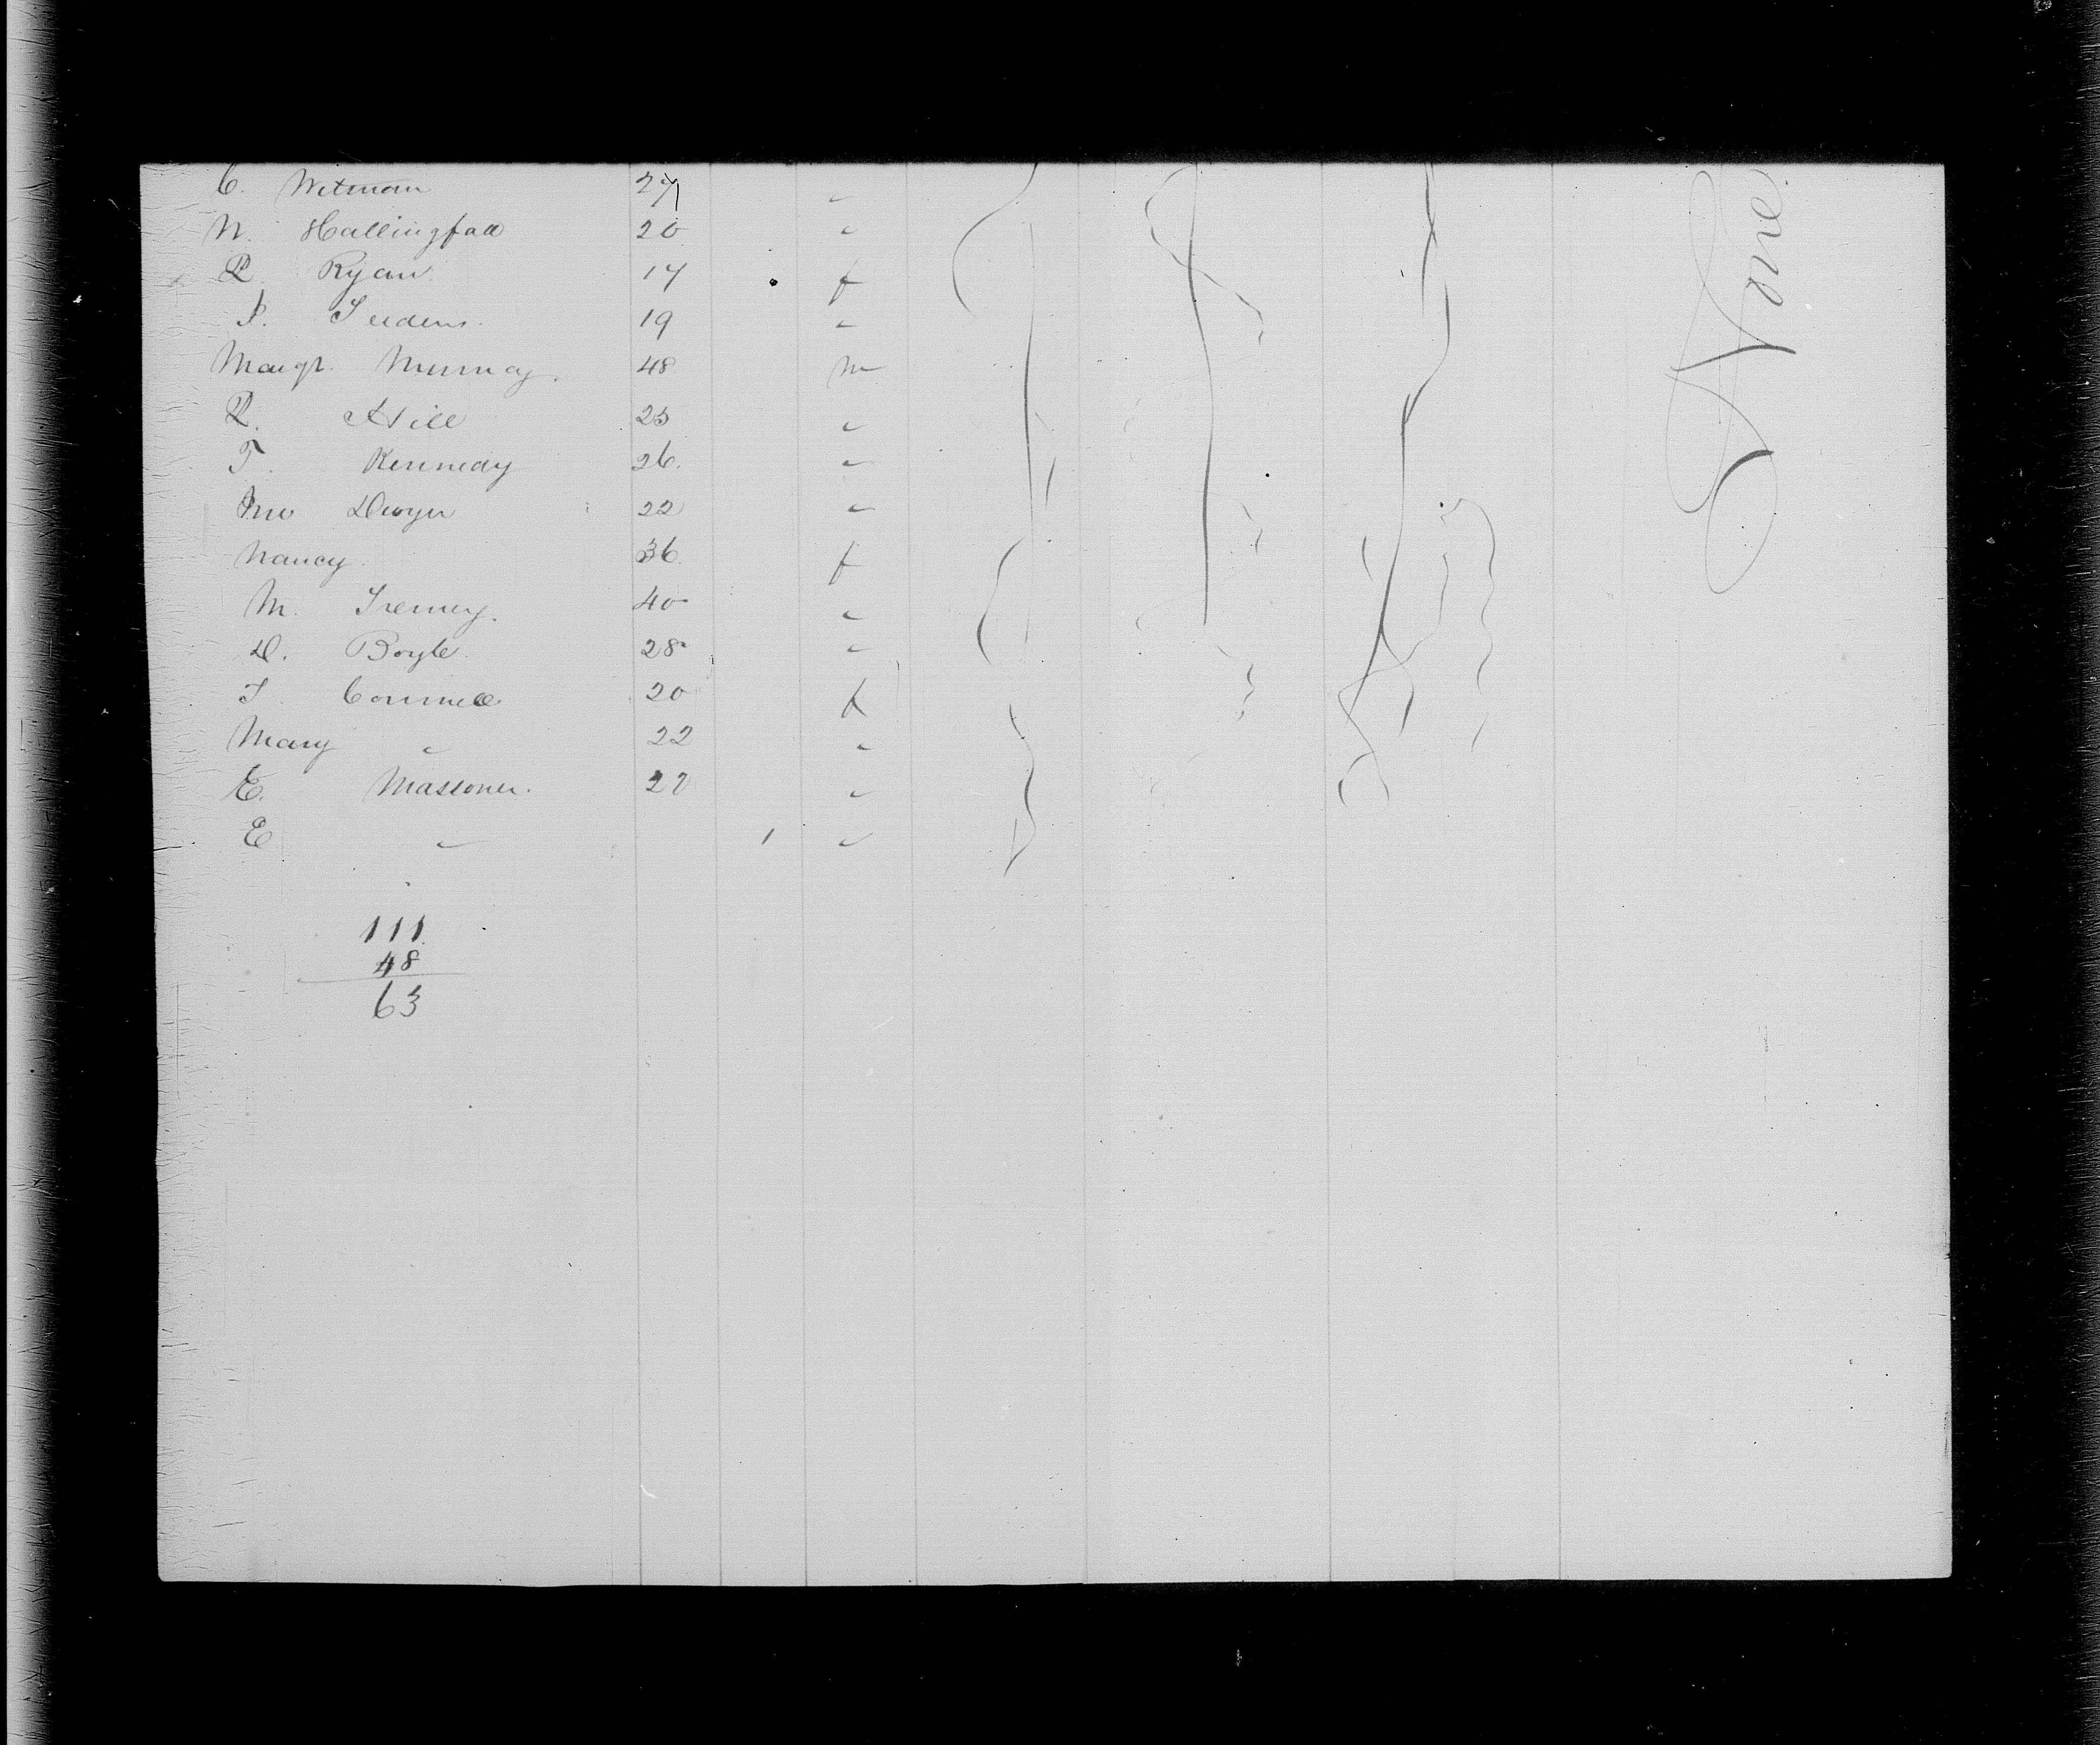 C. Witman 27 "
N. Hallingfall 20 "
P. Ryan 17 f
19 "
Margt. Murray. 48 m
P. Hill 25 "
T. Kennedy 26. "
Jno Dwyer 22 "
Nancy 36 f
M. 40 "
D. Boyle 28 "
T Connell 20 f
Mary " 22 "
E. 22 "
E " 1 "
None
111
48
63